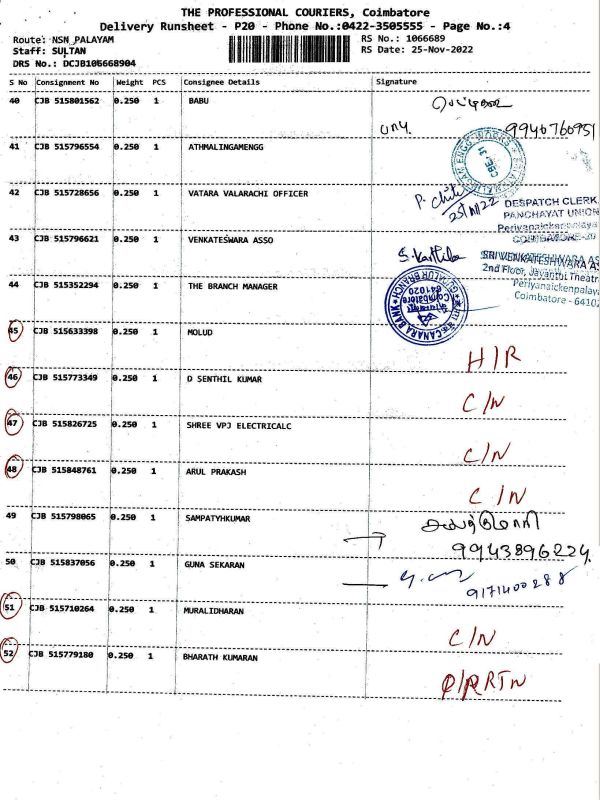 THE PROFESSIONAL COURIERS, Coimbatore
Delivery Runsheet - P20 - Phone No.:0422-3505555 - Page No.:4
Route: NSN_PALAYAM RS No.: 1066689
Staff: SULTAN RS Date: 25-Nov-2022
DRS No.: DCJB106668904
S No Consignment No Weight PCS Consignee Details Signature
40 CJB 515801562 0.250 1 BABU
9940760951
41 CJB 515796554 0.250 1 ATHMALINGAMENGG
CBE-31
42 CJB 515728656 0.250 1 VATARA VALARACHI OFFICER
25/11/22
DESPATCH CLERK
PANCHAYAT UNION
43 CJB 515796621 0.250 1 VENKATESWARA ASSO
S. Karthika
SRI VENKATESHWARA AS
2nd Floor, Jayanthi Theatr
Periyanaickenpalaya
Coimbatore - 64102
44 CJB 515352294 0.250 1 THE BRANCH MANAGER
CANARA BANK
GUDALUR BRANCH
Coimbatore
641020
45 CJB 515633398 0.250 1 MOLUD
H/R
46 CJB 515773349 0.250 1 D SENTHIL KUMAR
C/N
47 CJB 515826725 0.250 1 SHREE VPJ ELECTRICALC
C/N
48 CJB 515848761 0.250 1 ARUL PRAKASH
C/N
49 CJB 515798065 0.250 1 SAMPATYHKUMAR
9943896224
50 CJB 515837056 0.250 1 GUNA SEKARAN
9171400288
51 CJB 515710264 0.250 1 MURALIDHARAN
C/N
52 CJB 515779180 0.250 1 BHARATH KUMARAN
RTN